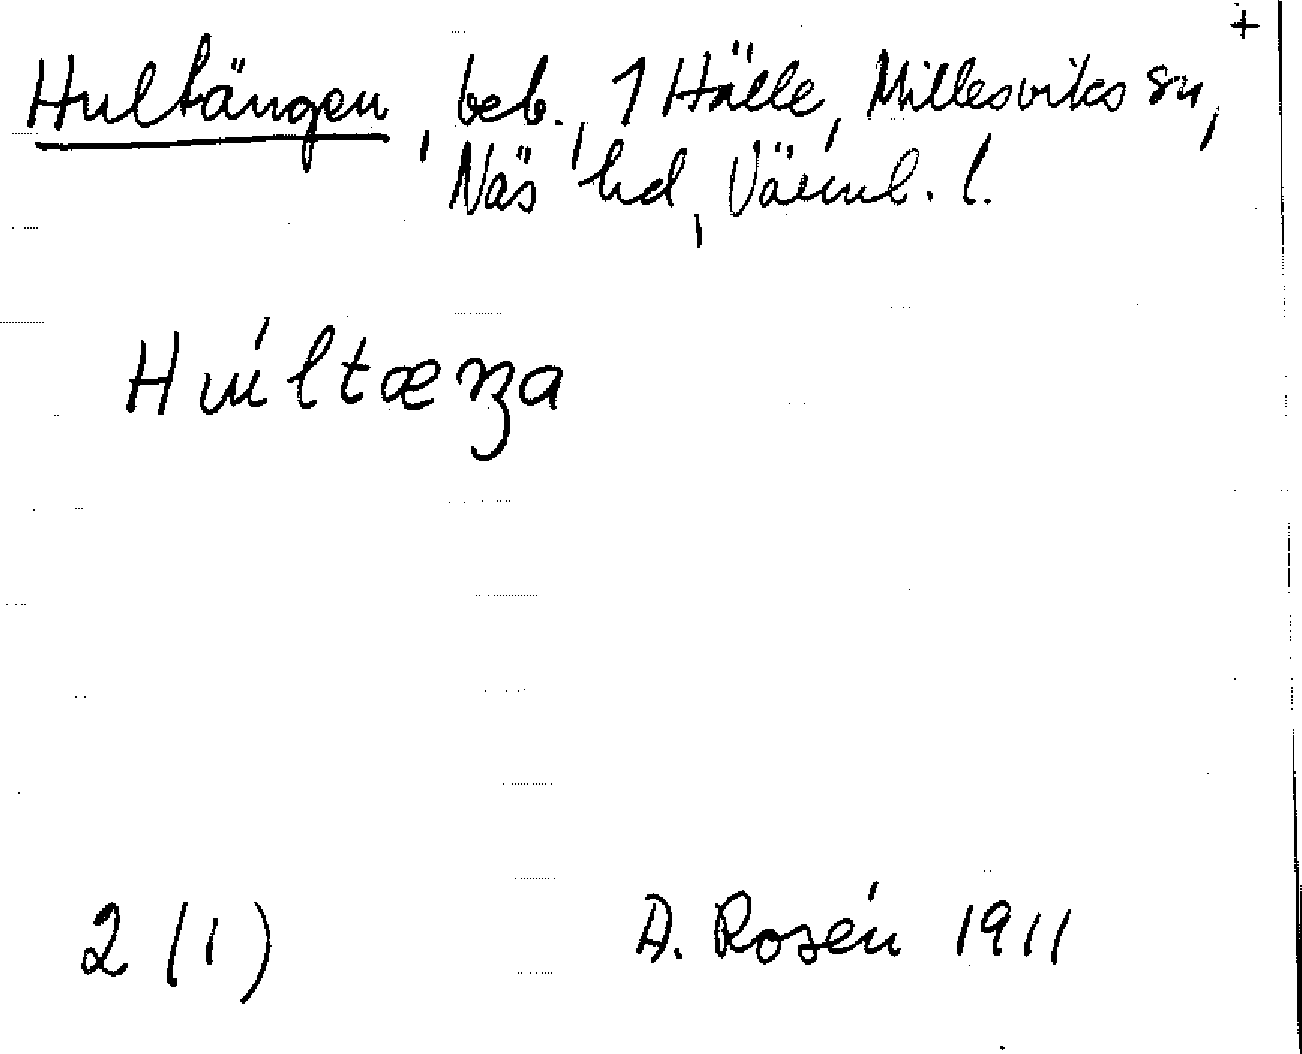 +
Hultängen, beb., 1 Hälle, Millesviks sn,
Näs hd, Värml. l.
2 (1) A. Rosén 1911